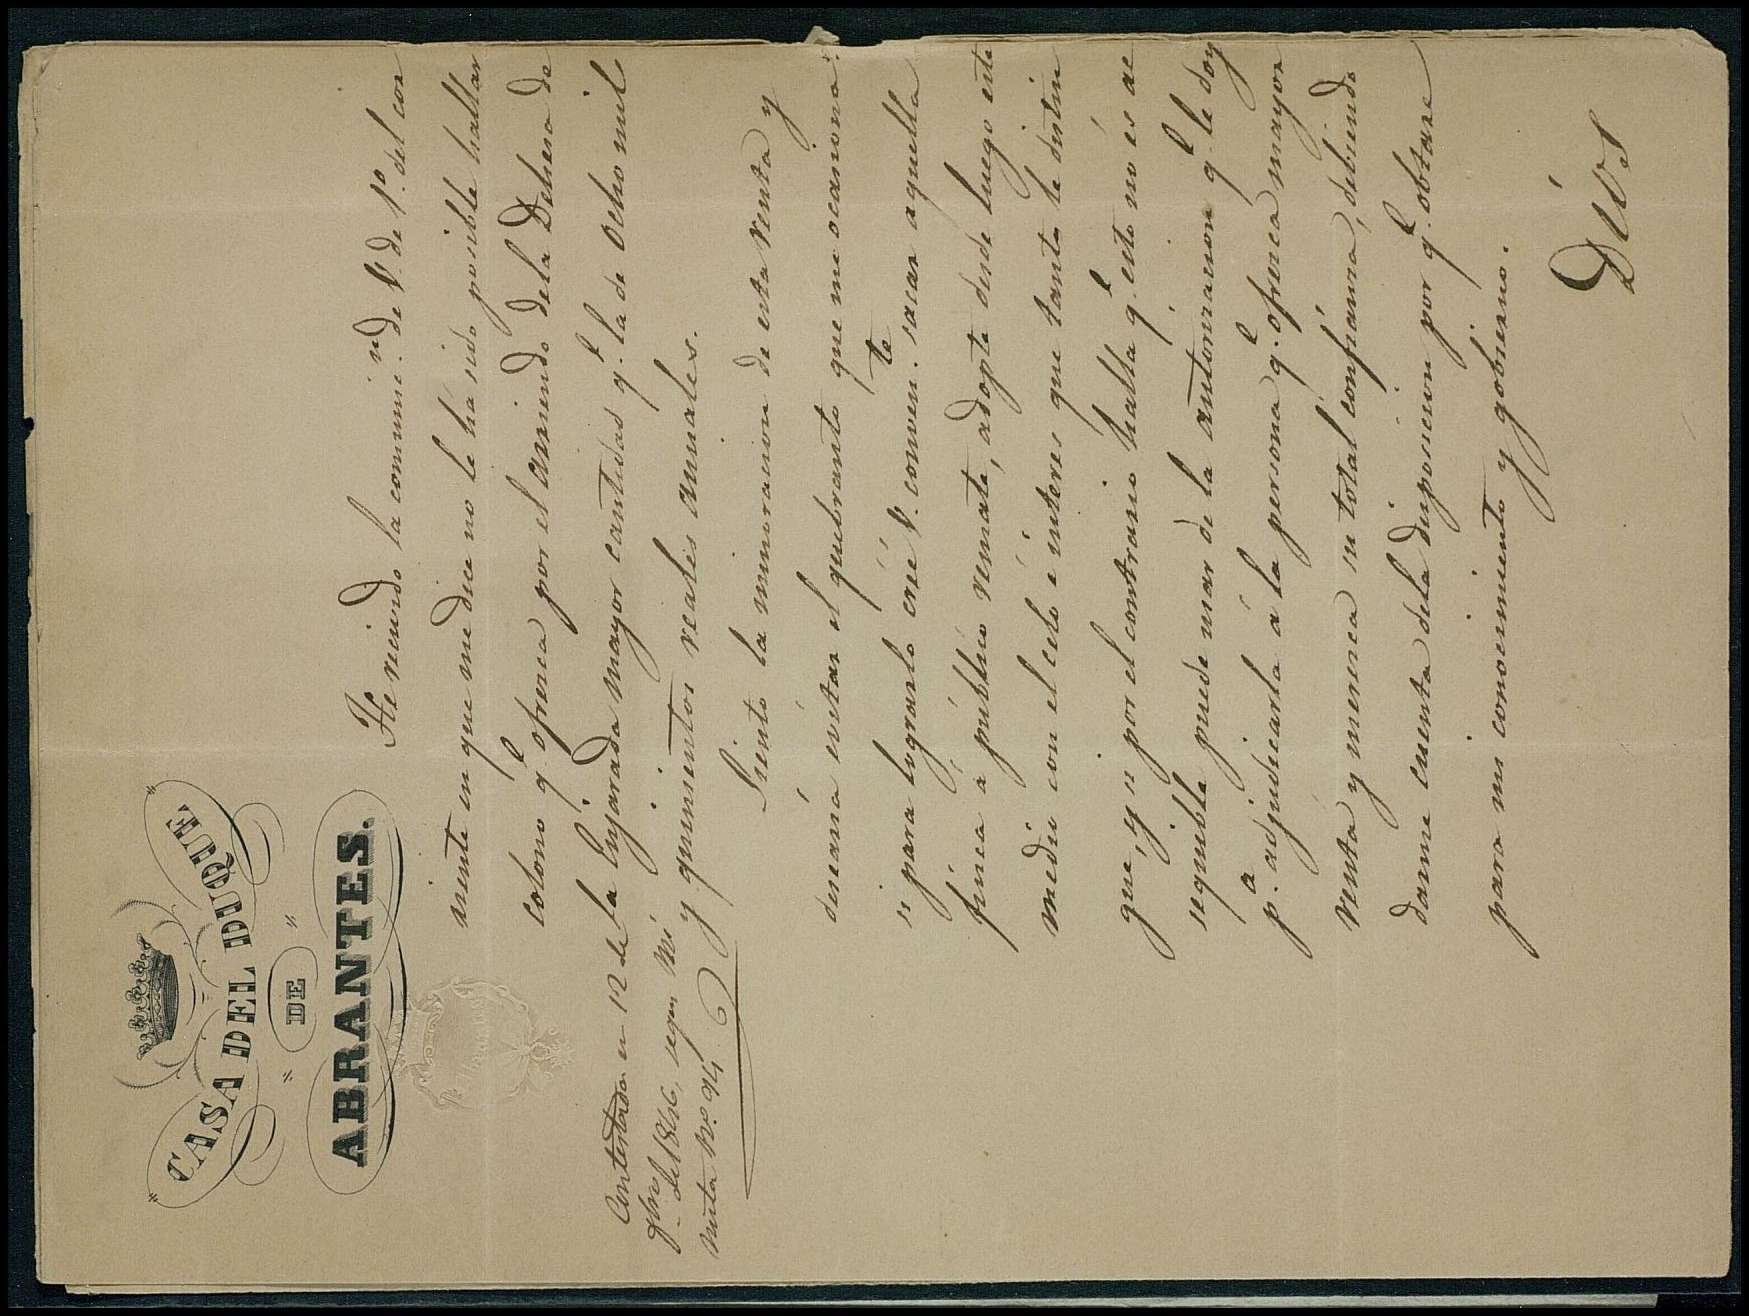 CASA DEL DUQUE
DE
ABRANTES.
Contestada en 12 de
8bre. de 1846, segun Mi
nuta Nº. 94
He recivido la comunic.n de V. de 1º. del cor
riente en que me dice no le há sido posible hallar
colono q.e ofrezca por el arriendo de la Dehesa de
la Enjarada mayor cantidad q.e la de ocho mil
y quinientos reales anuales.
Siento la minoracion de esta renta y
desearía evitar el quebranto que me ocasiona:
si para lograrlo cree V. conven.te sacar aquella
finca á público remate, adopte desde luego este
medio con el celo é interes que tanto le distin
gue, y si por el contrario halla q.e esto no és ac
sequible puede usar de la autorizacion q.e le doy
p.a adjudicarla á la persona q.e ofrezca mayor
renta y merezca su total confianza, debiendo
darme cuenta de la disposicion por q.e obtare
para mi conocimiento y gobierno.
Dios